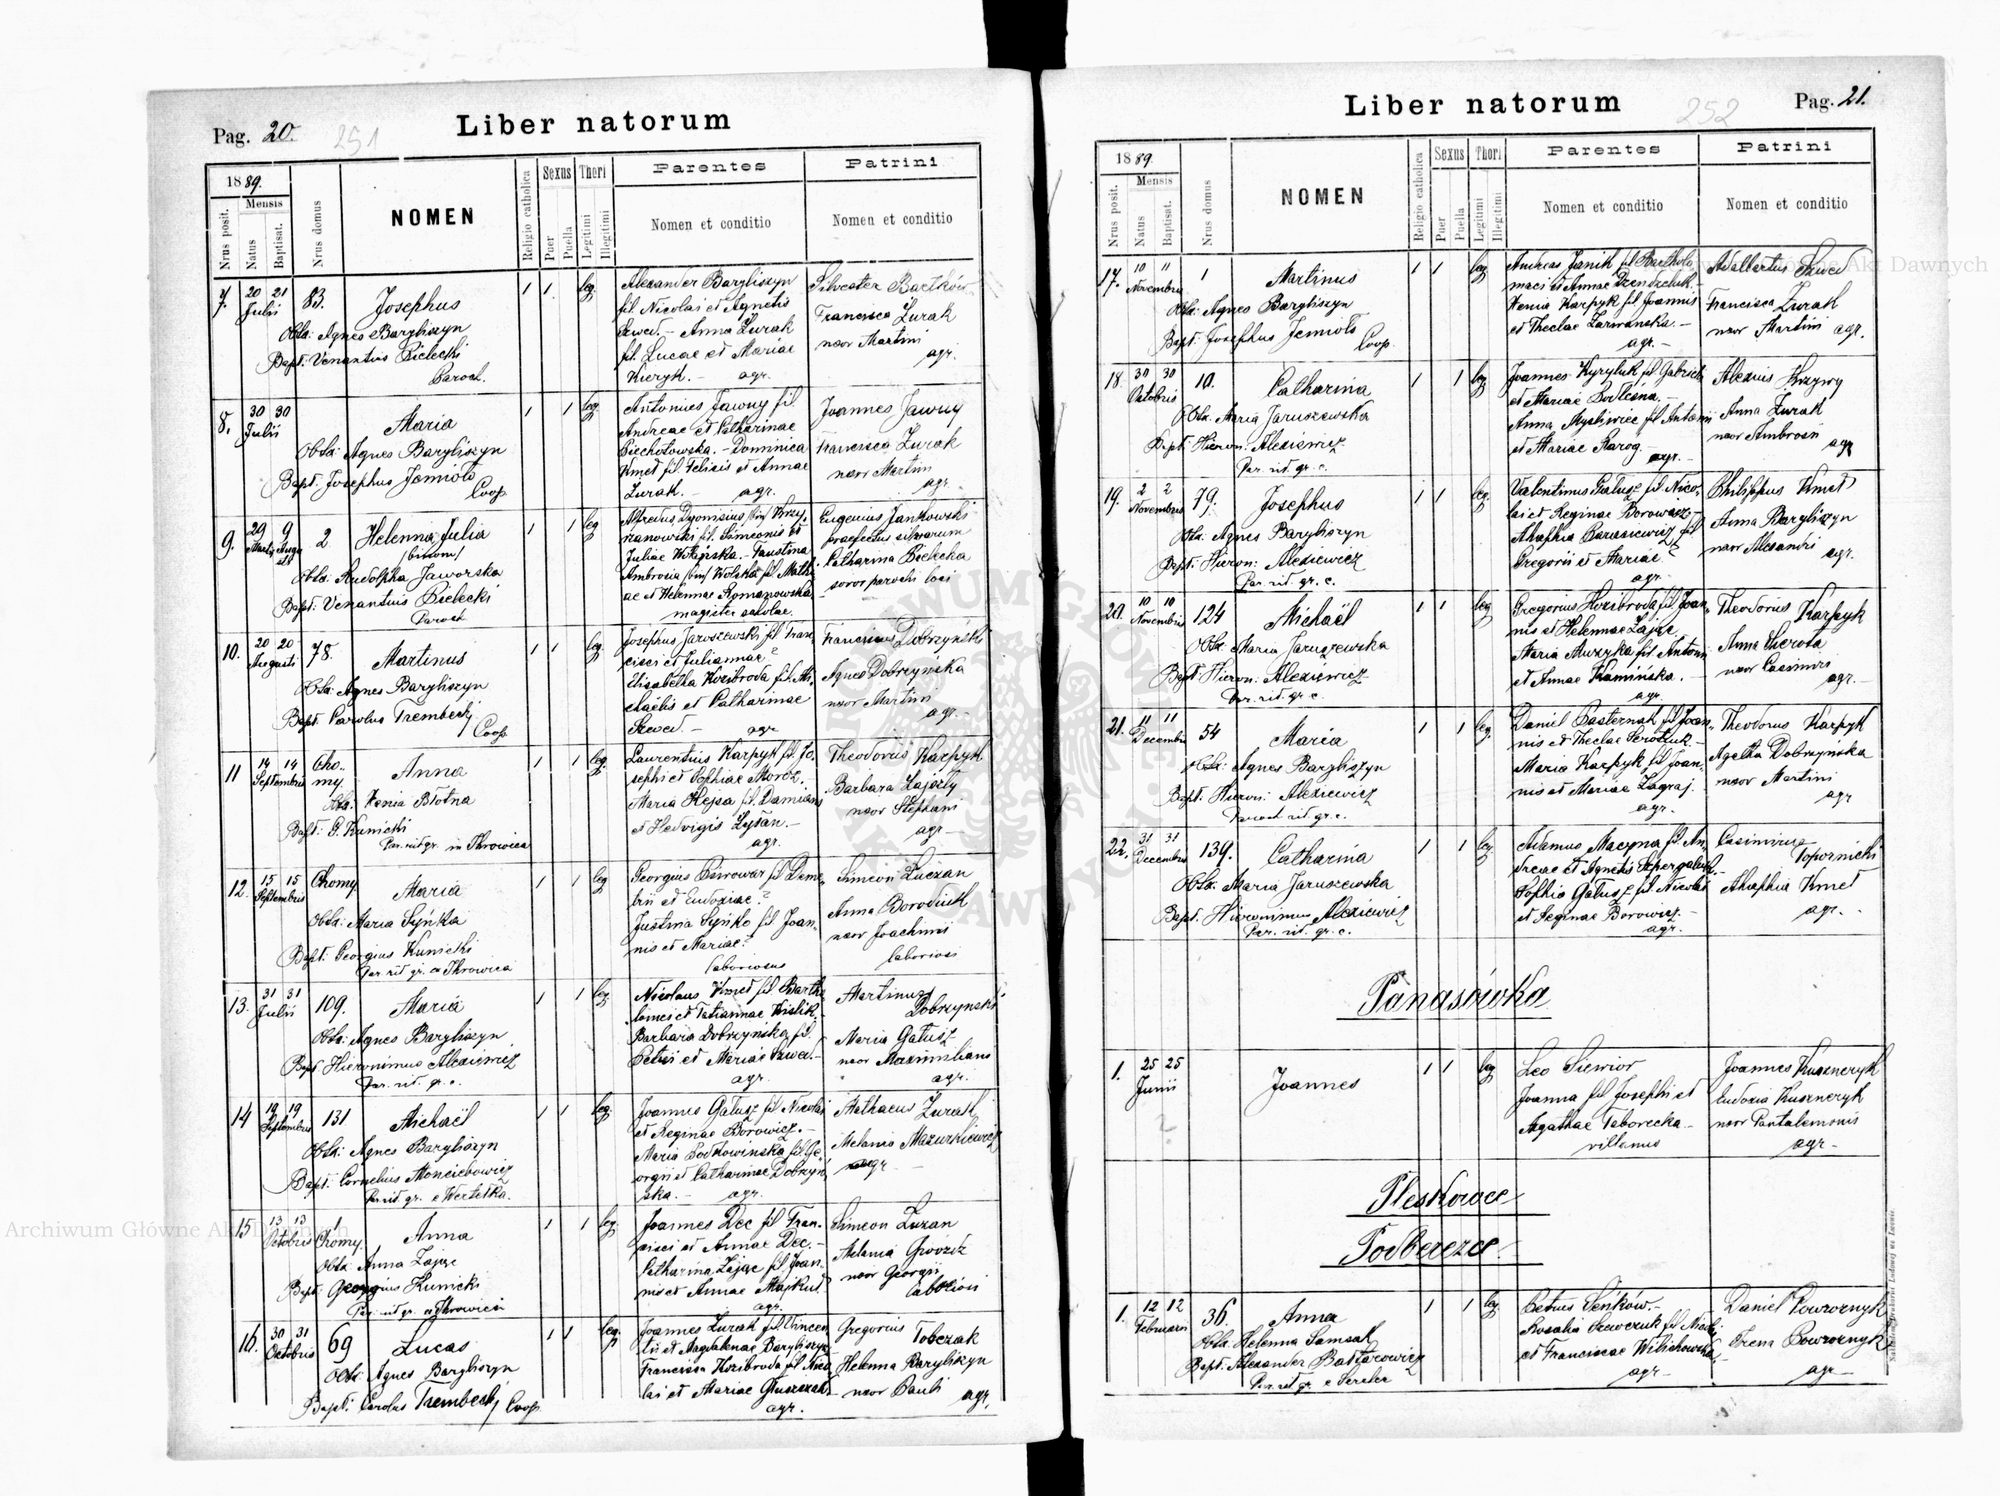 Pag. 20. 251
Liber natorum
1889.
Nrus posit.
Mensis
Natus
Baptisat.
Nrus domus
NOMEN
Religio catholica
Sexus
Puer
Puella
Thori
Legitimi
Illegitimi
Parentes
Nomen et conditio
Patrini
Nomen et conditio
7. 20 21 Julii 83. Josephus 1 1 leg.
Obst: Agnes Baryliszyn
Bapt: Venantius Bielecki
Paroch.
Alexander Baryliszyn
fil. Nicolai et Agnetis
Szwed. – Anna Żurak
fil. Lucae et Mariae
Kieryk. – agr.
Silvester
Francisca Żurak
uxor Martini
agr.
8. 30 30 Julii Maria 1 1 leg.
Obst: Agnes Baryliszyn
Bapt: Josephus Jemioło
Coop.
Antonius Jawny fil
Andreae et Catharinae
Piechotowska. – Dominica
Kmet fil. Felixis et Annae
Żurak. – agr.
Joannes Jawny
Francisca Żurak
uxor Martini
agr.
9. 29 9 2 Helenna Julia 1 1 leg
/binom/
Obst: Rudolpha Jaworska
Bapt: Venantius Bielecki
Paroch
Alfredus Dyonisius /bin/ Krzy-
żanowski fil. Simeonis et
Juliae – Faustina
Ambrosia /bin/ Wolska fil. Math-
ae et Helennae Romanowska
magister scholae.
Eugenius Jankowski
praefectus silvarum
Catharina Bielecka
soror parochi loci
10. 20 20 Augusti 78. Martinus 1 1 leg.
Obst: Agnes Baryliszyn
Bapt: Carolus Trembecki
Coop
Josephus Jaroszewski fil Fran-
cisci et Juliannae?
Elisabetha Kozibroda fil. Mi-
chaelis et Catharinae
Szwed. – agr
Franciscus Dobrzyński
Agnes Dobrzynska
uxor Martini
agr. –
11 14 14 Septembris Cho-
my. Anna 1 1 leg.
Obst. Xenia Błotna
Bapt: G. Kunicki
Par. rit gr. in Ihrowica
Laurentius Karpyk fil. Jo-
sephi et Sophiae Moroz.
Maria Rejsa fil. Damiani
et Hedvigis Łysan. –
agr.
Theodorus Karpyk
Barbara
uxor Stephani
agr –
12. 15 15 Septembris Chomy Maria 1 1 leg
Obst: Maria Syńka
Bapt: Georgius Kunicki
Par. rit gr. e Ihrowica
Georgius Piwowar fil Deme-
trii et Eudoxiae?
Justina Syńko fil Joan-
nis et Mariae?
laboriosus
Simeon Łuczan
Anna Borodiuk
uxor Joachimi
laboriosi
13. 31 31 Julii 109. Maria 1 1 leg.
Obst: Agnes Barylisyn
Bapt Hieronimus Alexiewicz
Par. rit. gr. c.
Nicolaus Kmet fil Bartho-
lomei et Tatiannae Kislik.
Barbara Dobrzyńska fil.
Petri et Maria Szwed. –
agr.
Martinus
Dobrzynski
Maria Gałusz
uxor Maximiliani
agr.
14 19 19 Septembris 131 Michaël 1 1 leg.
Obst: Agnes Barylisyn
Bapt: Cornelius Monciebowicz
Par. rit. gr. e Wertełka.
Joannes Gałusz fil Nicolai
et Reginae Borowicz. –
Maria Sodkowinska fil. Ge-
orgii et Catharinae Dobrzyń
ska. – agr.
Mathaeus Żurak
Melania Mazurkiewicz
agr –
15 13 13 Octobris 1 Chomy. Anna 1 1 leg.
Obst: Anna Zając
Bapt: Georgius Kunicki
Par. rit gr. e Ihrowica
Joannes Dec fil Fran-
cisci et Annae Dec. –
Catharina Zając fil Joan-
nis et Annae Majkut
agr.
Simeon Łuzan
Melania Gwozdz
uxor Georgii
laboriosi
16. 30 31 Octobris 69 Lucas 1 1 leg.
Obst: Agnes Barylisyn
Bapt: Carolus Trembecki Coop
Joannes Żurak fil Vincen
tii et Magdalenae Barylisyn
Francisca Kozibroda fil Nico
lai et Mariae Głuszczak
agr.
Gregorius Tobczak
Helenna Barylisyn
uxor Pauli agr.
Liber natorum
252 Pag. 21.
1889.
Nrus posit.
Mensis
Natus
Baptisat.
Nrus domus
NOMEN
Religio catholica
Sexus
Puer
Puella
Thori
Legitimi
Illegitimi
Parentes
Nomen et conditio
Patrini
Nomen et conditio
17. 10 11 Novembris 1 Martinus 1 1 leg
Obst: Agnes Barylisyn
Bapt: Josephus Jemioło
Coop.
Andreas Janik fil Bartholo
maei et Annae
Xenia Karpyk fil Joannis
et Theclae Zarwanska. –
agr. –
Adalbertus Szwed
Francisca Żurak
uxor Martini agr.
18. 30 30 Octobris 10. Catharina 1 1 leg
Obst. Maria Jaruszewska
Bapt: Hieron: Alexiewicz
Par. rit. gr. c.
Joannes Kyryluk fil Gabrielis
et Mariae
Anna Mysliwiec fil Antonii
et Mariae Karog. – agr. –
Alexius Krzywy
Anna Żurak
uxor Ambrosii
agr
19. 2 2 Novembris 79. Josephus 1 1 leg.
Obst. Agnes Barylisyn
Bapt: Hieron: Alexiewicz
Par. rit. gr. c.
Valentinus Gałusz fil. Nico-
lai et Reginae Borowicz –
Ahaphia Barasiewicz fil
Gregorii et Mariae?
agr.
Philippus Kmet
Anna Barylisyn
uxor Alexandri
agr.
20. 10 10 Novembris 124 Michaël 1 1 leg
Obst: Maria Jaruszewska
Bapt: Hieron: Alexiewicz
Par. rit. gr. c.
Gregorius Kozibroda fil. Joan-
nis et Helennae Zając.
Maria Muzyka fil. Antonii
et Annae Kamińska. –
agr.
Theodorus Karpyk
Anna Sierota
uxor Casimiri
agr. –
21. 11 11 Decembris 54 Maria 1 1 leg.
Obst: Agnes Barylisyn
Bapt: Hieron: Alexiewicz
Paroch rit. gr. c.
Daniel Pasternak fil Joan-
nis et Theclae –
Maria Karpyk fil. Joan-
nis et Mariae Zagraj.
agr. –
Theodorus Karpyk
Agatha Dobrzyńska
uxor Martini
agr
22. 31 31 Decembris 139. Catharina 1 1 leg
Obst: Maria Jaruszewska
Bapt: Hieronimus Alexiewicz
Par. rit. gr. c.
Adamus Maczna fil. An-
dreae et Agnetis
Sophia Gałusz fil. Nicolai
et Reginae Borowicz. –
agr.
Casimirus
Topornicki
Ahaphia Kmet
agr. –
Panasówka
1. 25 25 Junii Joannes 1 1 leg
Leo Siewior
Joanna fil Josephi et
Agathae Taborecka –
villanus
Joannes Kuszneryk
Eudoxia Kuszneryk
uxor Pantalemonis
agr –
Pleskowce
Podberezce
1. 12 12 Februarii 36. Anna 1 1 leg
Obst. Helenna Samsak
Bapt: Alexander
Par. rit gr. e Sereler
Petrus Seńków. –
Rosalia Szewczuk fil. Nicolai
et Franciscae
agr –
Daniel Powroznyk
Irena Powroznyk
agr –
Archiwum Główne Akt Dawnych
Archiwum Główne Akt Dawnych
ARCHIWUM GŁÓWNE AKT DAWNYCH